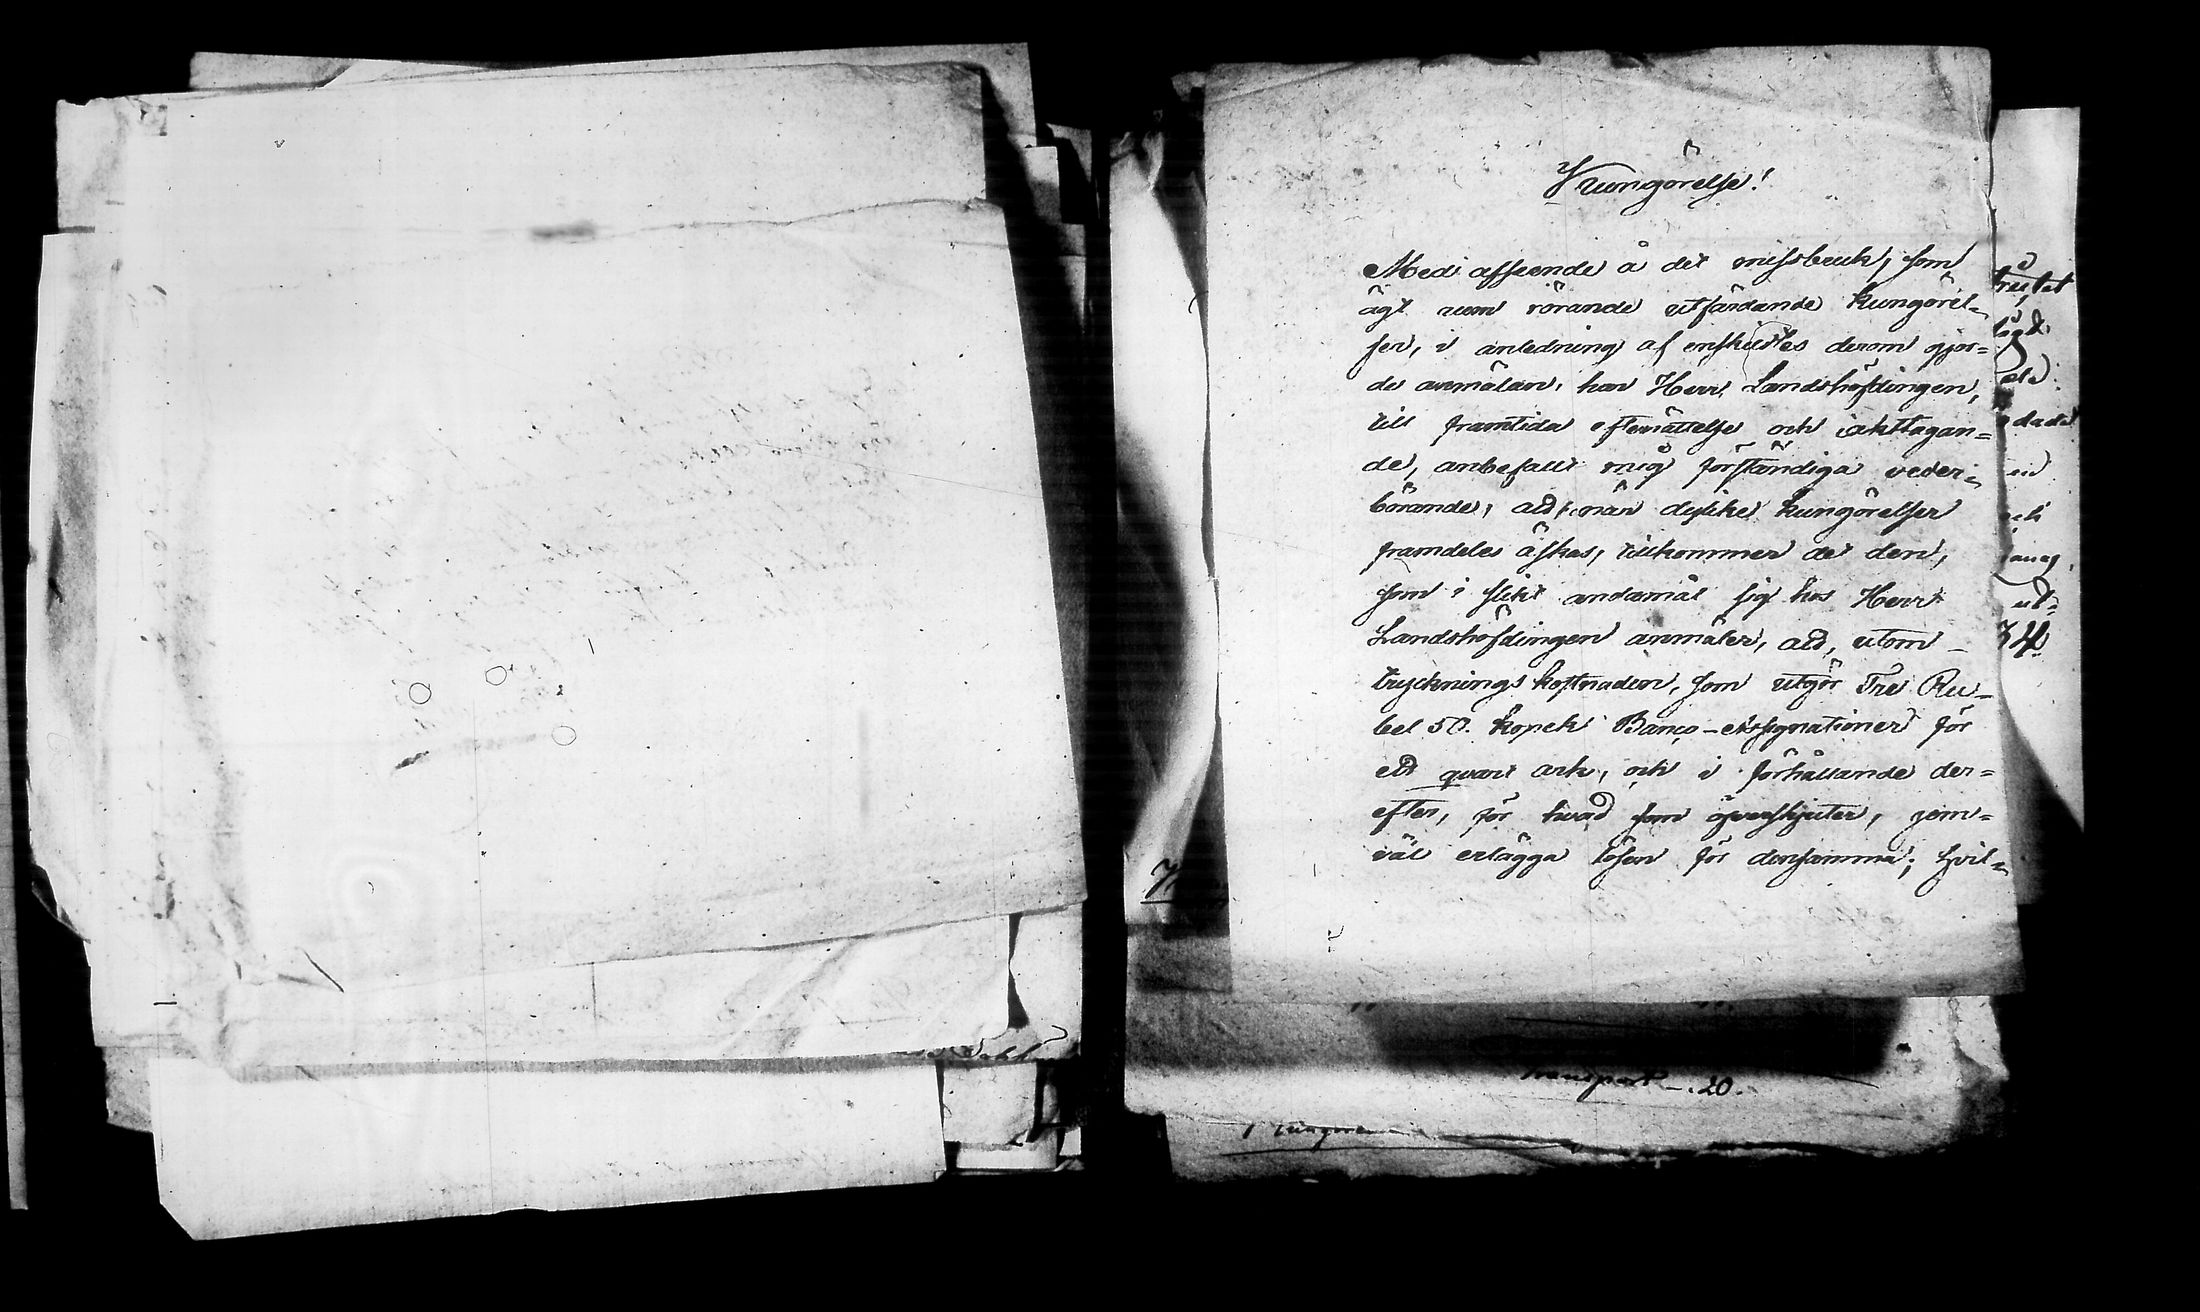 Kungörelse!
Med afseende å det missbruk, som
ägt rum rörande utfärdande kungörel-
ser, i anledning af enskildtes derom gjor=
de anmälan, har Herr Landshöfdingen,
till framtida efterrättelse och iakttagan=
de, anbefallt mig förständiga veder-
börande, att, när dylike kungörelser
framdeles äskas, tillkommer det den,
som i slikt andamål sig hos Herr
Landshöfdingen anmäler, att, utom
trycknings kostnaden, som utgör Tre Ru-
bel 50. kopek Banco-Assignationer för
ett qvart ark, och i förhållande der=
efter, för hvad som öfverskjuter, jem=
väl erlägga lösen för densamma; hvil=
34
Transport –. 20.